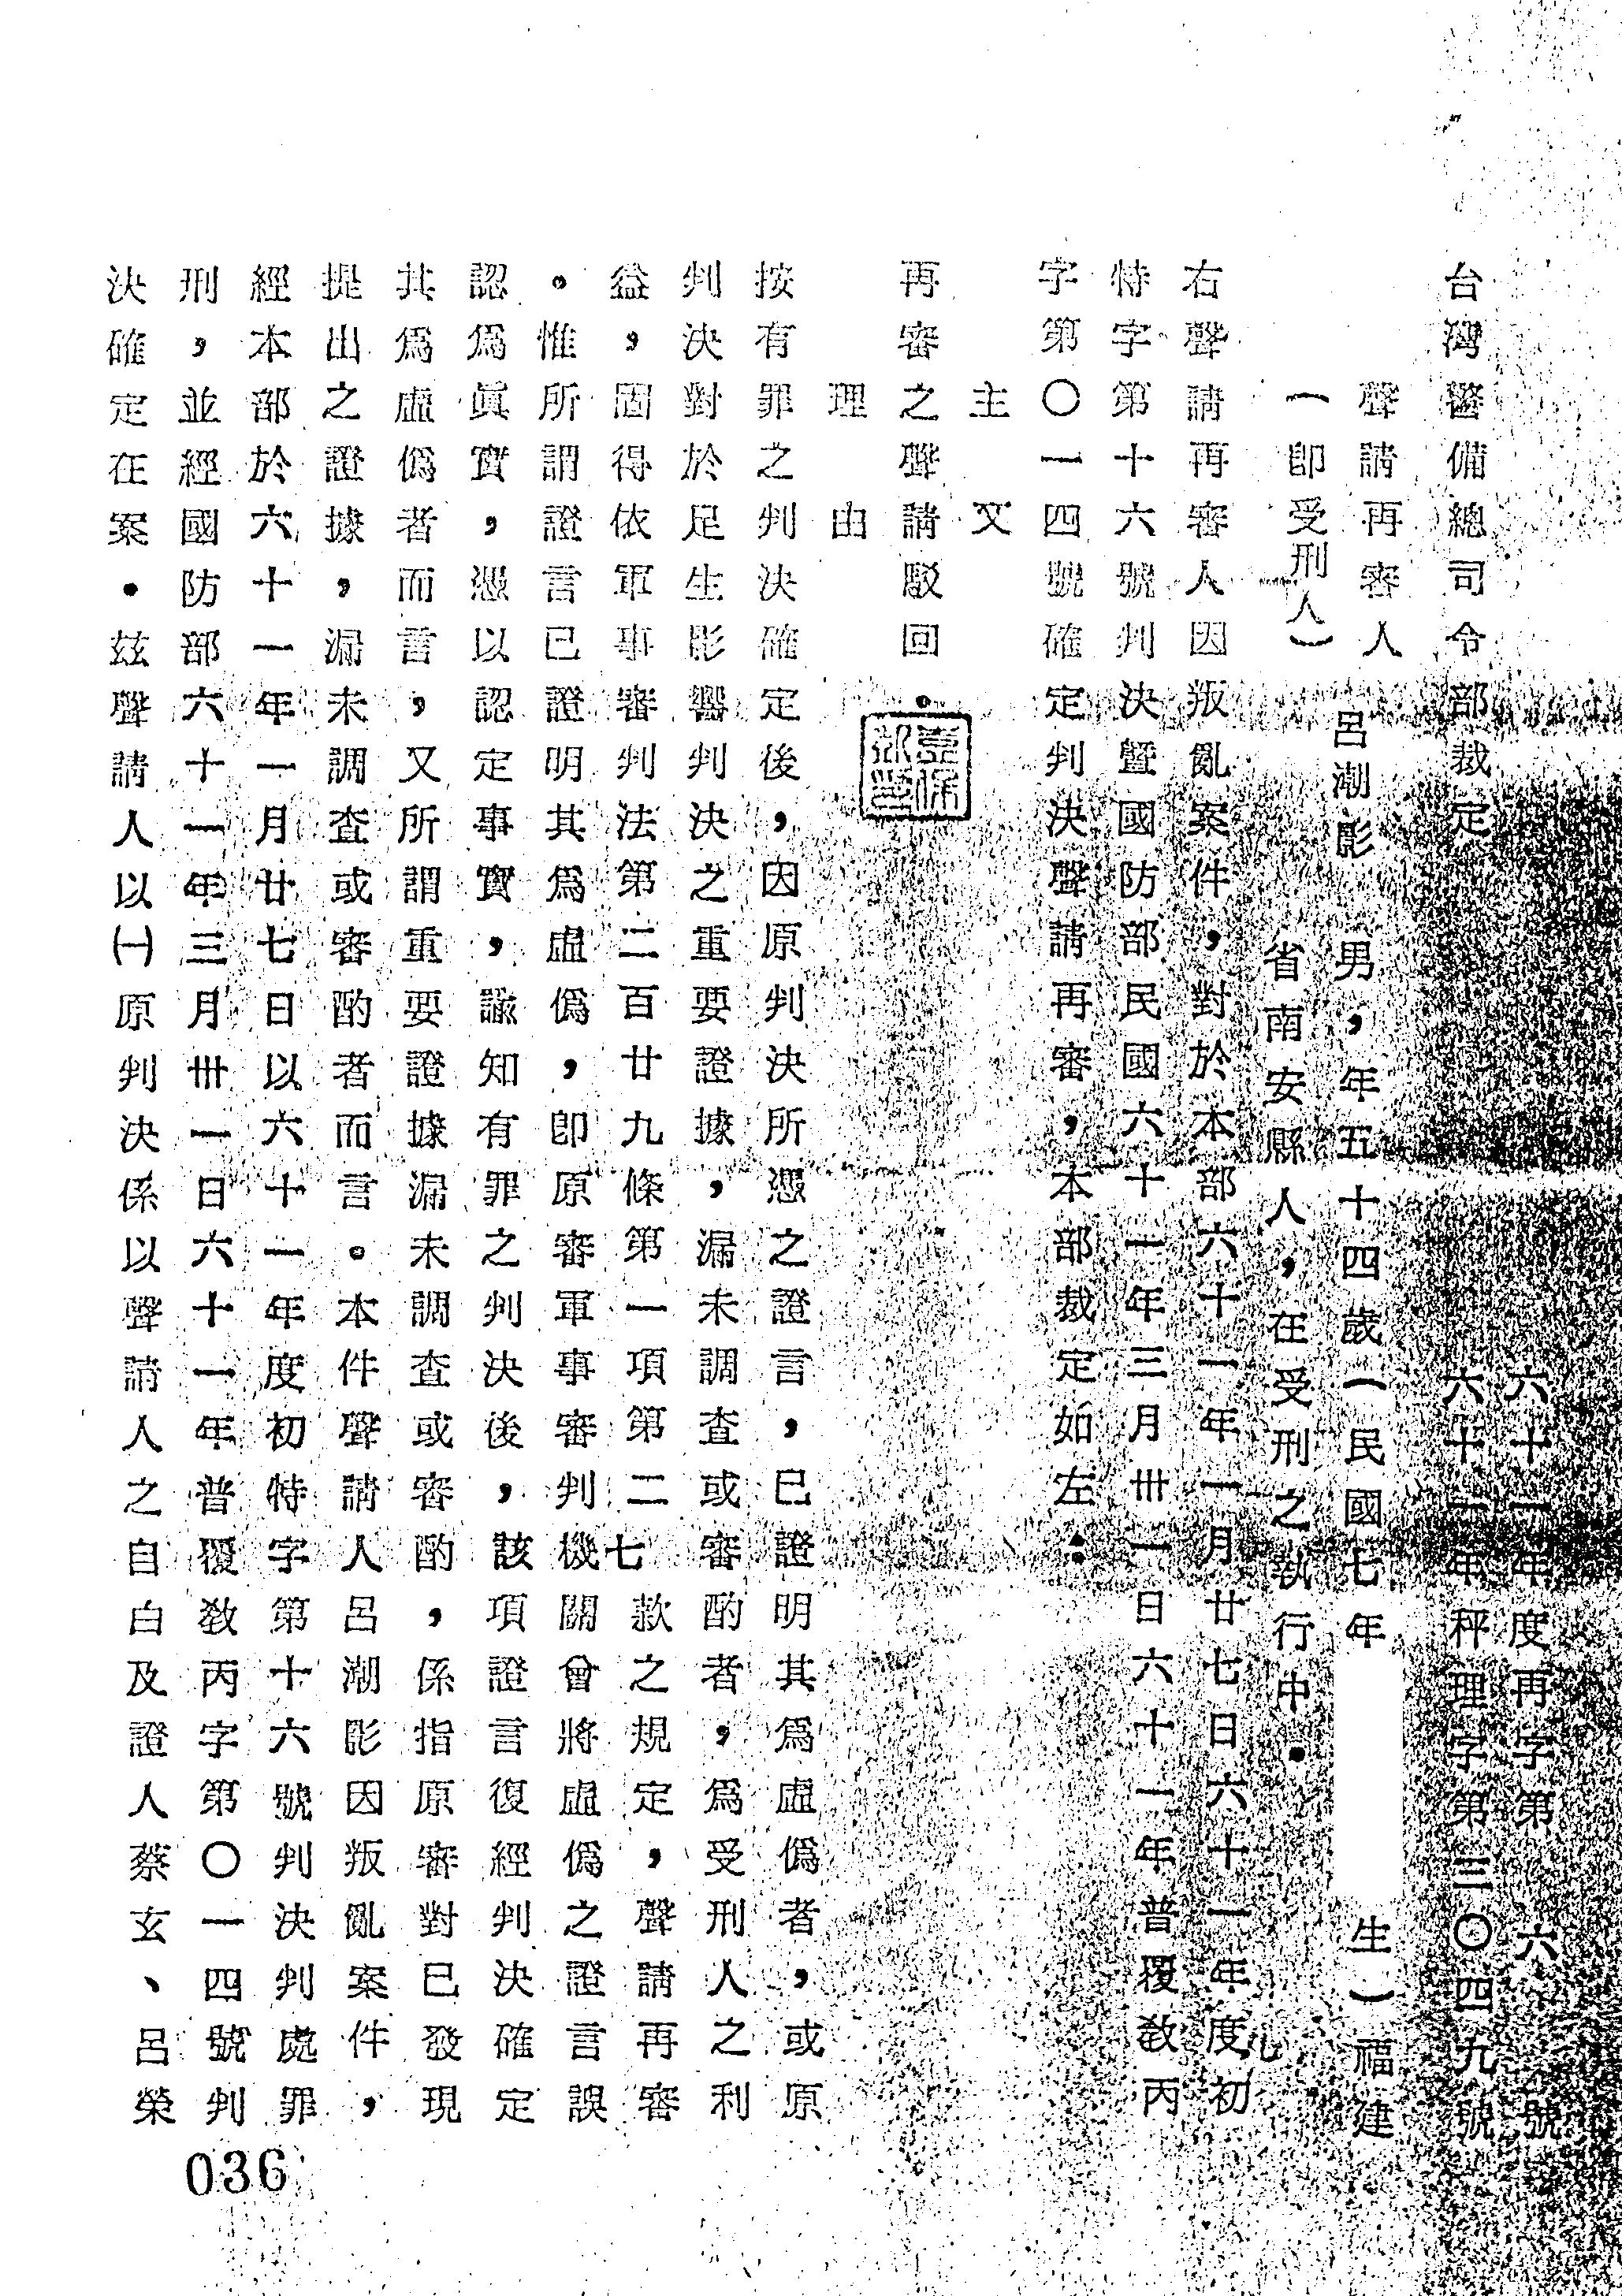 六十一年度再字第六號
台灣警備總司令部裁定　六十一年秤理字第三〇四九號
聲請再審人　呂潮影　男，年五十四歲（民國七年　生）福建
（即受刑人）　省南安縣人，在受刑之執行中．
右聲請再審人因叛亂案件，對於本部六十一年一月廿七日六十一年度初
特字第十六號判決暨國防部民國六十一年三月卅一日六十一年普覆敎丙
字第〇一四號確定判決聲請再審，本部裁定如左：
主文
再審之聲請駁回。
理由
按有罪之判決確定後，因原判決所憑之證言，已證明其爲虛僞者，或原
判決對於足生影響判決之重要證據，漏未調查或審酌者，爲受刑人之利
益，固得依軍事審判法第二百廿九條第一項第二七款之規定，聲請再審
。惟所謂證言已證明其爲虛僞，即原審軍事審判機關曾將虛僞之證言誤
認爲眞實，憑以認定事實，諭知有罪之判決後，該項證言復經判決確定
其爲虛僞者，而言，又所謂重要證據漏未調查或審酌，係指原審對已發現
提出之證據，漏未調查或審酌者而言。本件聲請人呂潮影因叛亂案件，
經本部於六十一年一月廿七日以六十一年度初特字第十六號判決判處罪
刑，並經國防部六十一年三月卅一日六十一年普覆敎丙字第〇一四號判
決確定在案．茲聲請人以㈠原判決係以聲請人之自白及證人蔡玄、呂榮
036